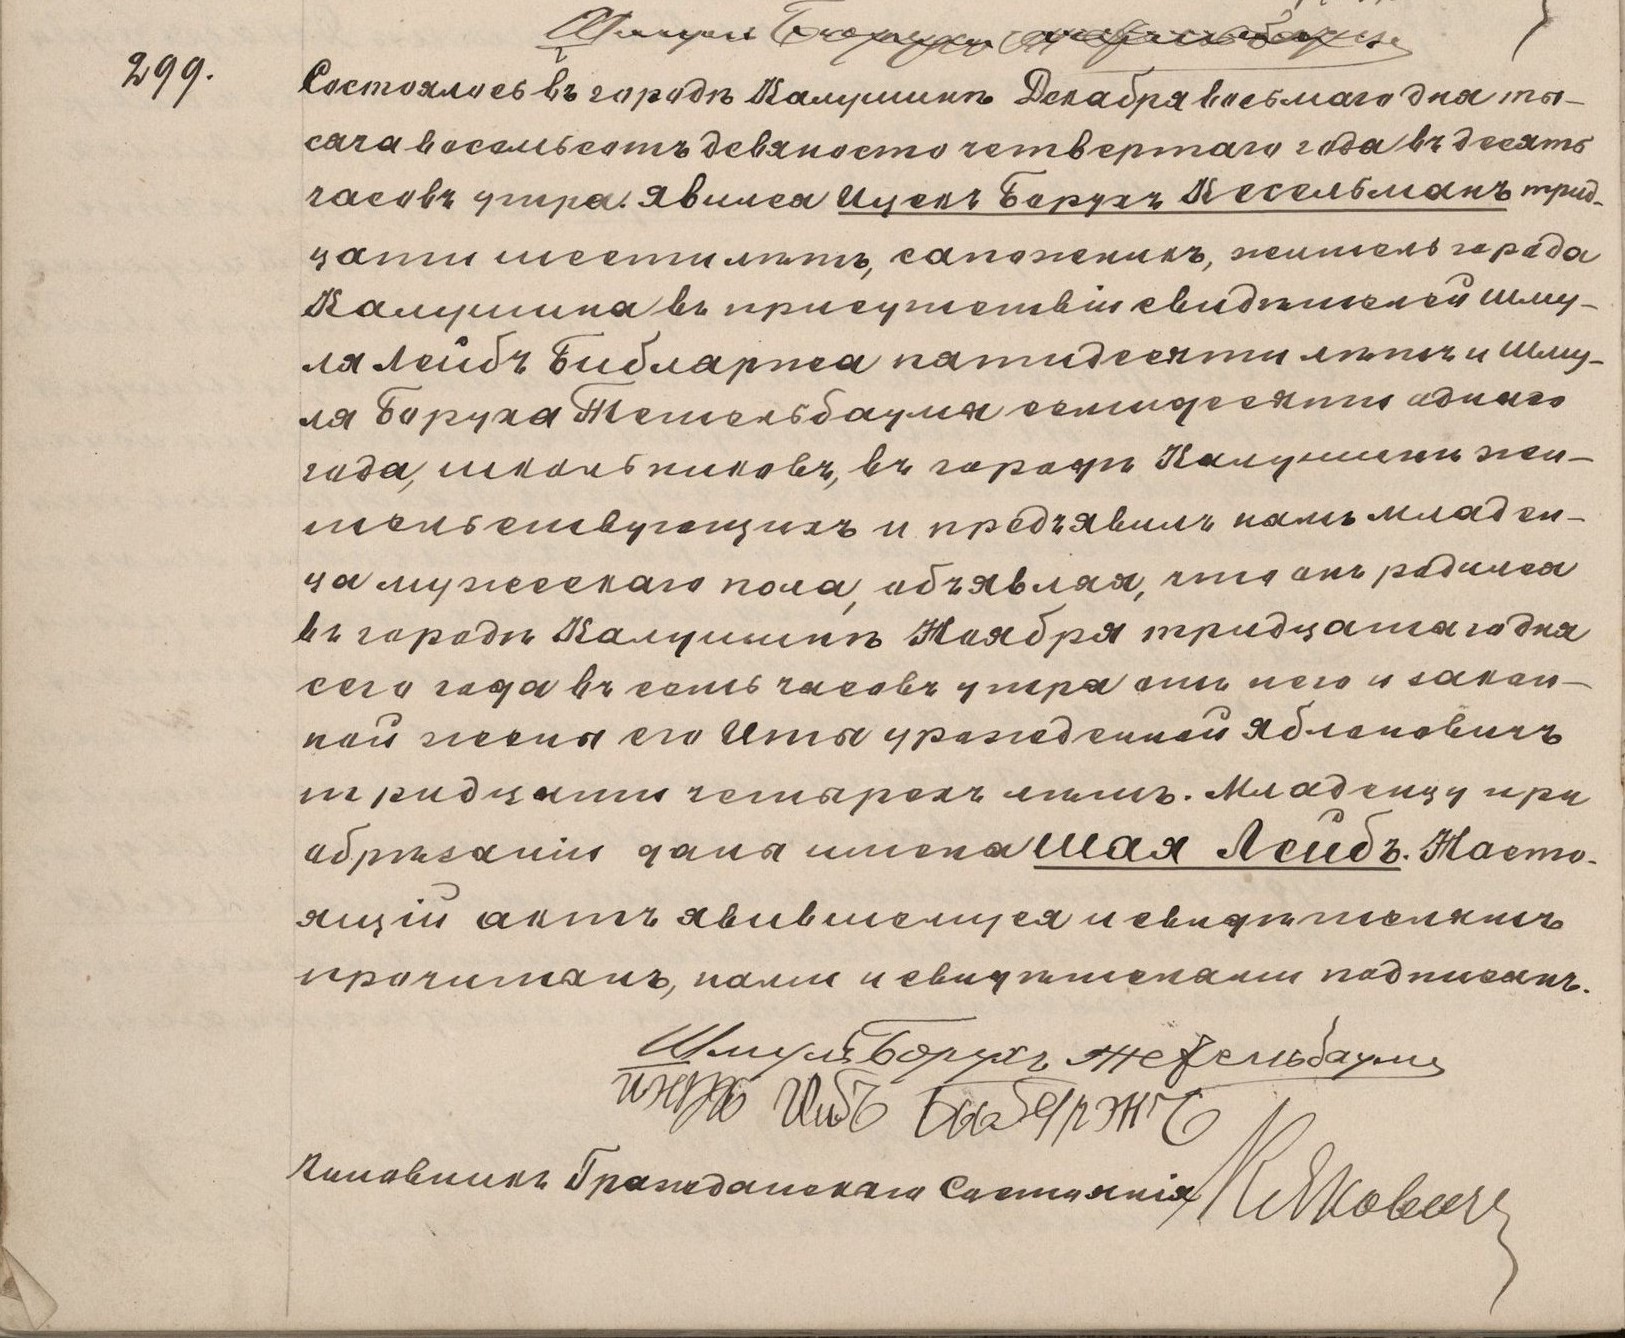 Шмуль Борухъ
299.
Состоялось въ городѣ Калушинѣ Декабря восьмаго дня ты-
сяча восемьсотъ девяносто четвертаго года въ десять
часовъ утра. Явился Ицекъ Борухъ Кесельманъ трид-
цати шести лѣтъ, сапожникъ, житель города
Калушина въ присутствіи свидѣтелей Шму-
ля Лейбъ пятидесяти лѣтъ и Шму-
ля Боруха Тетельбаума семидесяти одного
года, школьниковъ, въ городѣ Калушинѣ жи-
тельствующихъ и предъявилъ намъ младен-
ца мужескаго пола, объявляя, что онъ родился
въ городѣ Калушинѣ Ноября тридцатаго дня
сего года въ семь часовъ утра отъ него и закон-
ной жены его Иты урожденной Яблоновичъ
тридцати четырехъ лѣтъ. Младенцу при
обрѣзаніи даны имена Шая Лейбъ. Насто-
ящій актъ явившемуся и свидѣтелямъ
прочитанъ, нами и свидѣтелями подписанъ.
Шмуль Борухъ Тетельбаумъ
Чиновникъ Гражданскаго Состоянія